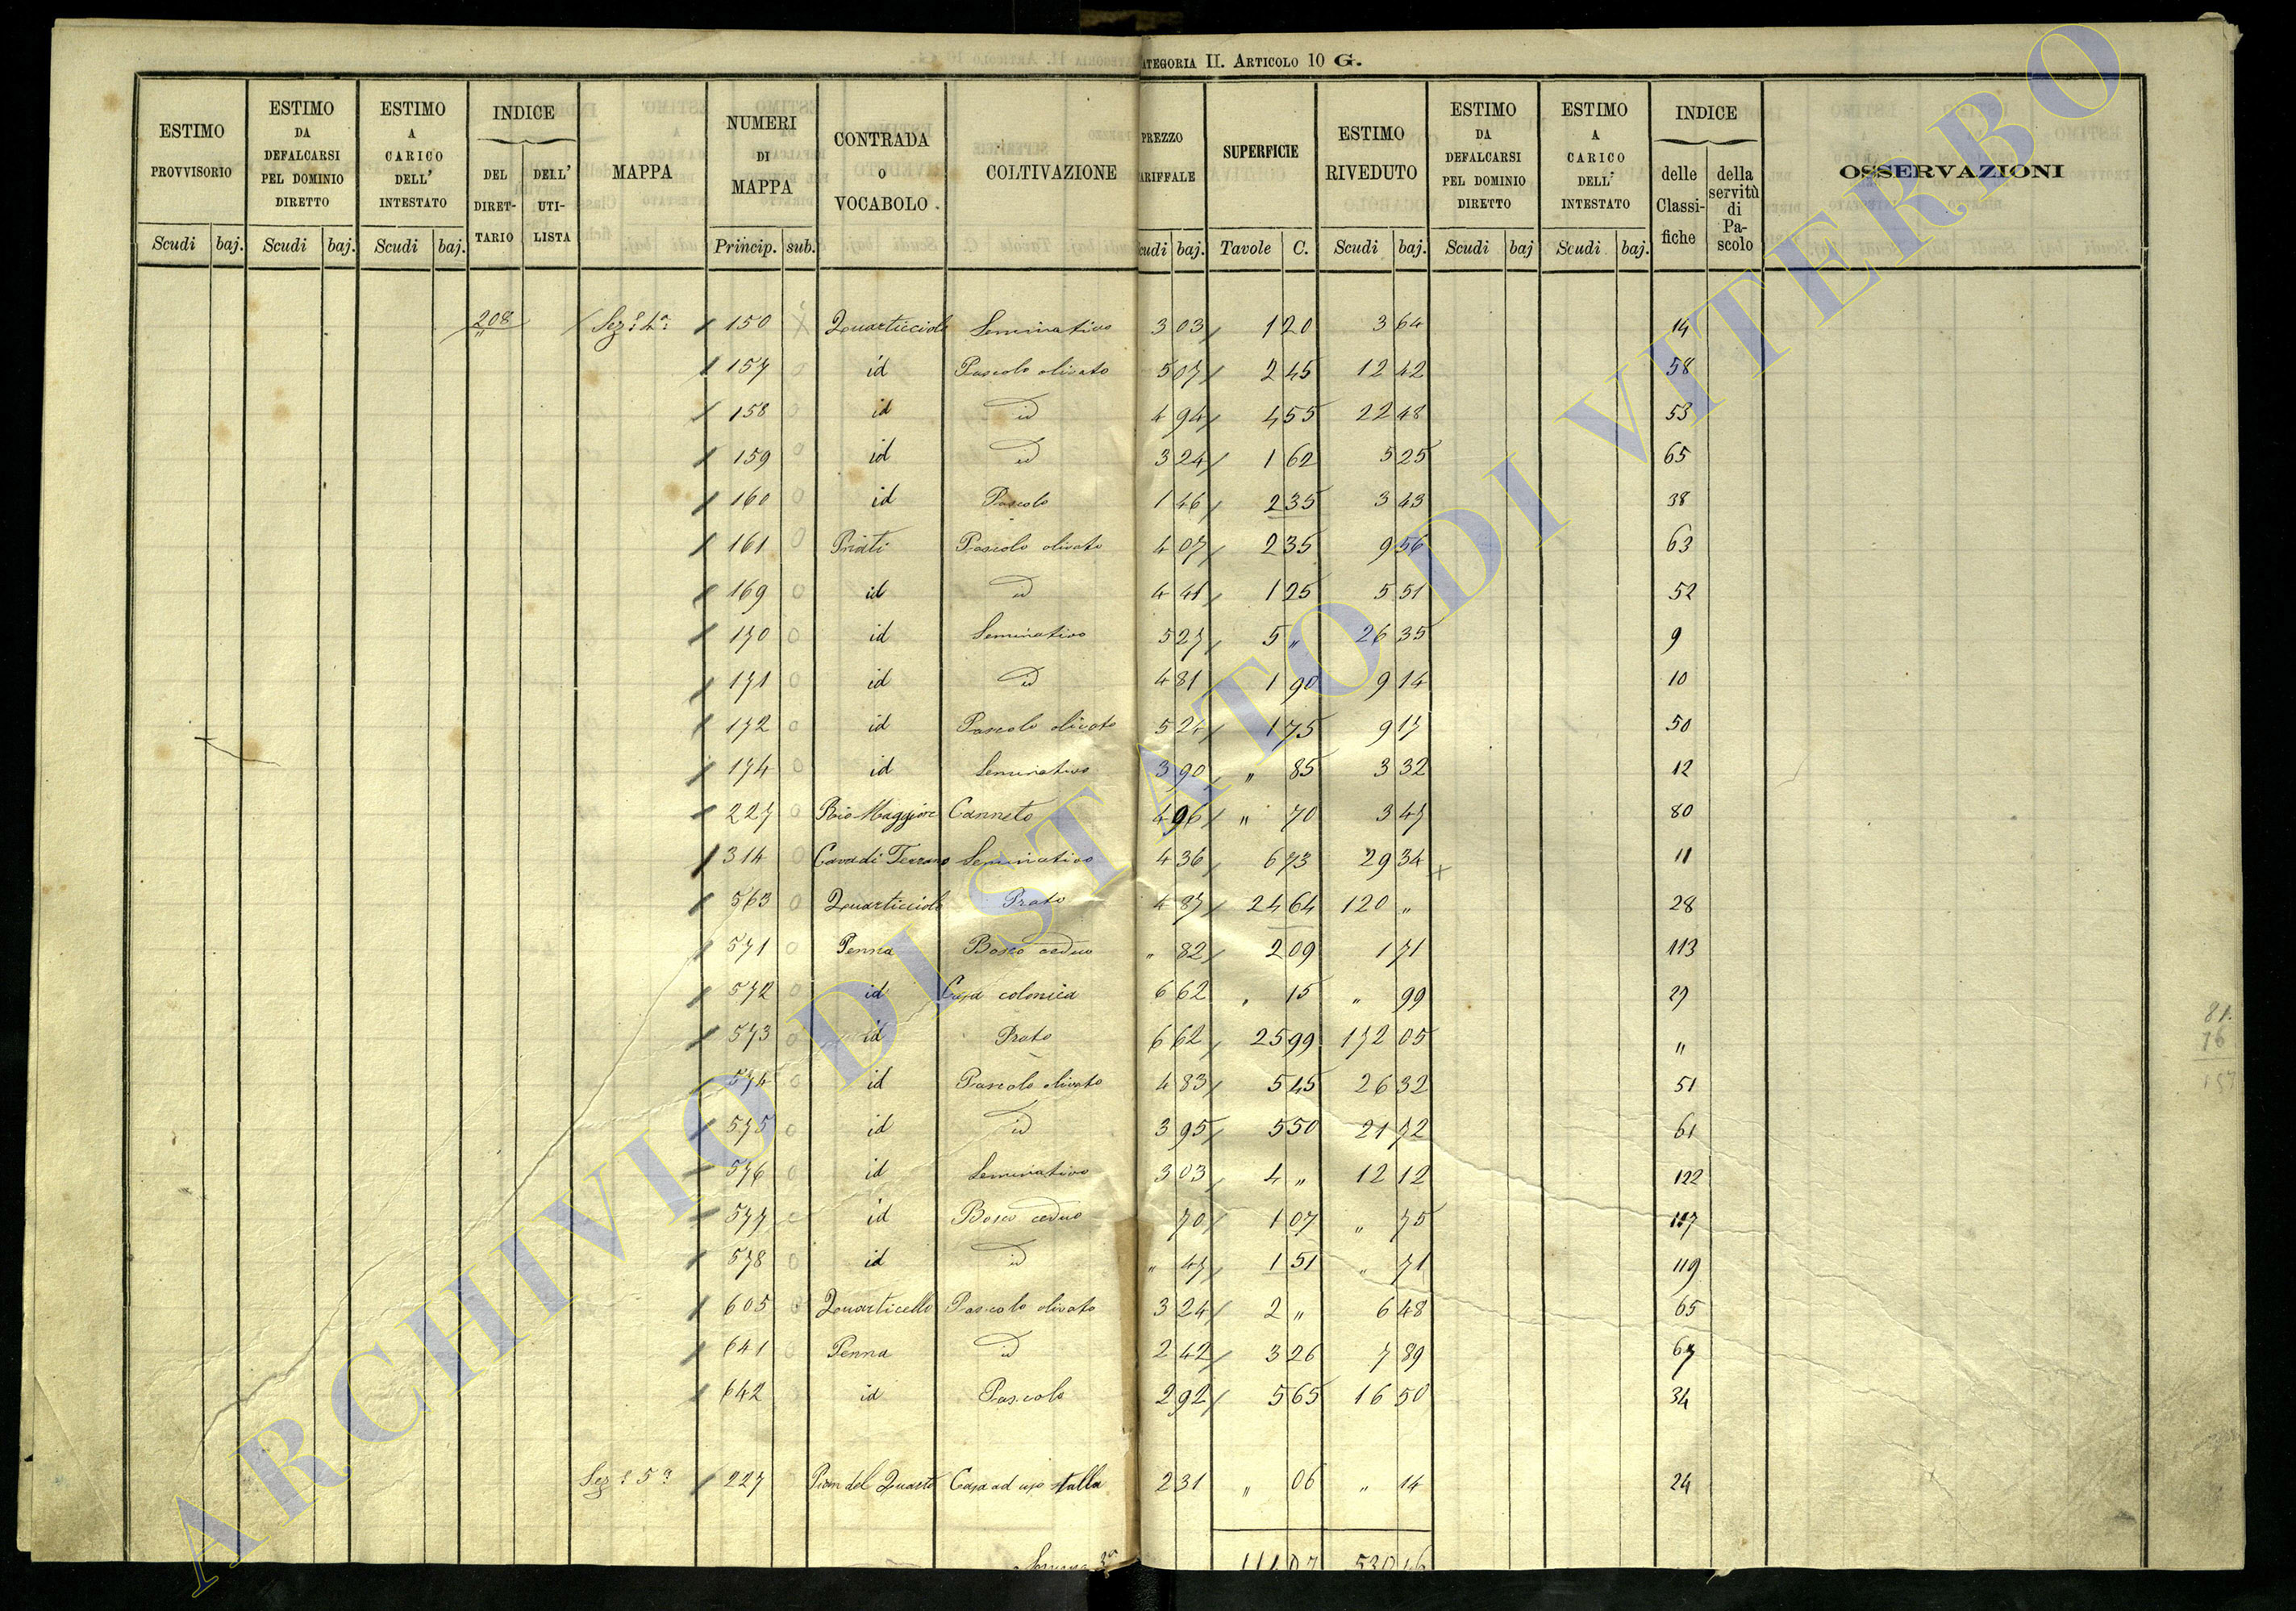 CATEGORIA II. ARTICOLO 10 G.
ESTIMO PROVVISORIO Scudi baj.
ESTIMO DA DEFALCARSI PEL DOMINIO DIRETTO Scudi baj.
ESTIMO A CARICO DELL' INTESTATO Scudi baj.
INDICE DEL DIRET-TARIO DELL' UTI-LISTA
MAPPA
NUMERI DI MAPPA Princip. sub.
CONTRADA O VOCABOLO.
COLTIVAZIONE
PREZZO TARIFFALE Scudi baj.
SUPERFICIE Tavole C.
ESTIMO RIVEDUTO Scudi baj.
ESTIMO DA DEFALCARSI PEL DOMINIO DIRETTO Scudi baj
ESTIMO A CARICO DELL' INTESTATO Scudi baj.
INDICE delle Classi-fiche della servitù di Pa-scolo
OSSERVAZIONI
208 Sez.e 4a 150 Quarticciolo Seminativo 3 03 1 20 3 64 14
157 id Pascolo olivato 5 07 2 45 12 42 58
158 id id 4 94 4 55 22 48 53
159 id id 3 24 1 62 5 25 65
160 id Pascolo 1 46 2 35 3 43 38
161 Prati Pascolo olivato 4 07 2 35 9 56 63
169 id id 4 41 1 25 5 51 52
170 id Seminativo 5 27 5 " 26 35 9
171 id id 4 81 1 90 9 14 10
172 id Pascolo olivato 5 24 1 75 9 17 50
174 id Seminativo 3 90 " 85 3 32 12
227 Rio Maggiore Canneto 4 96 " 70 3 47 80
314 Cava di Terrano Seminativo 4 36 6 73 29 34 11
563 Quarticciolo Prato 4 87 24 64 120 " 28
571 Penna Bosco ceduo " 82 2 09 1 71 113
572 id Casa colonica 6 62 " 15 " 99 27
573 id Prato 6 62 25 99 172 05 "
574 id Pascolo olivato 4 83 5 45 26 32 51
575 id id 3 95 5 50 21 72 61
576 id Seminativo 3 03 4 " 12 12 122
577 id Bosco ceduo 70 1 07 " 75 117
578 id id " 47 1 51 " 71 119
605 Quarticello Pascolo olivato 3 24 2 " 6 48 65
641 Penna id 2 42 3 26 7 89 67
642 id Pascolo 2 92 5 65 16 50 34
Sez.e 5a 227 Pian del Quarto Casa ad uso stalla 2 31 " 06 " 14 24
Somma 111 07 530 46
81.
76
157
ARCHIVIO DI STATO DI VITERBO